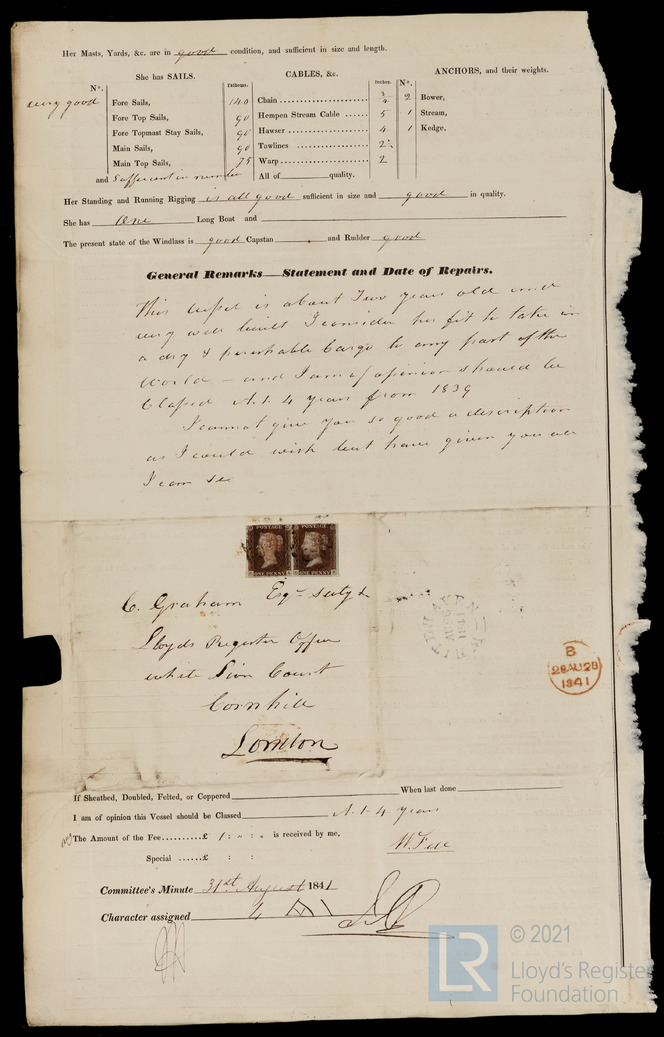 Her Masts, Yards, &c. are in good condition, and sufficient in size and length.
She has SAILS. CABLES, &c. ANCHORS, and their weights.
N°. Fathoms. Inches. N°.
very good Fore Sails, 140 Chain 3/4 2 Bower,
Fore Top Sails, 90 Hempen Stream Cable 5 1 Stream,
Fore Topmast Stay Sails, 90 Hawser 4 1 Kedge,
Main Sails, 90 Towlines 2½
Main Top Sails, 75 Warp 2
and Sufficient in number All of quality.
Her Standing and Running Rigging is all good sufficient in size and good in quality.
She has One Long Boat and
The present state of the Windlass is good Capstan and Rudder good
General Remarks—Statement and Date of Repairs.
This vessel is about Two years old and
very well built I consider her fit to take in
a dry & perishable Cargo to any part of the
World – and I am of opinion should be
Classed A.1. 4 years from 1839
I cannot give you so good a description
as I could wish but have given you all
I can see
POSTAGE POSTAGE
ONE PENNY ONE PENNY
C. Graham Esqr Secty
Lloyds Register Office
White Lion Court
Cornhill
London
WHITEHAVEN
AU 26
1841
B
28 AU 28
1841
If Sheathed, Doubled, Felted, or Coppered When last done
I am of opinion this Vessel should be Classed A.1. 4 years
The Amount of the Fee..........£ 1 : " : " is received by me,
Special ......£ : :
Committee's Minute 31st August 1841
Character assigned 4 A1
© 2021
LR Lloyd's Register
Foundation